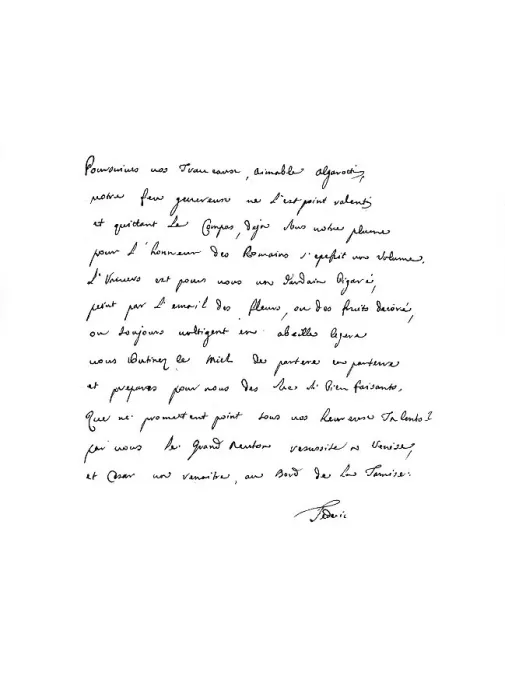 Poursuives vos Traveaux, aimable algaroti,
votre feu genereux ne s'est point ralenti
et quittant le Compas, deja sous votre plume
pour l'honneur des Romains s'epessit un volume.
L'Univers est pour vous un Jardain bigaré,
peint par l'email des fleurs, ou des fruits decoré,
ou toujours voltigent en abeille legere
vous butinez le miel de partere en parterre
et prepares pour nous des sucs si bien faisants.
Que ne promettent point tous vos heureux Talents?
par vous le grand Neuton resussite a Venise,
et Cesar va renaitre, au Bord de la Tamise.
Federic